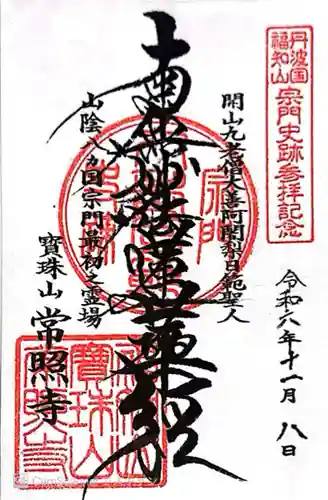 丹波国
福知山
宗門史跡参拝記念
令和六年十一月八日
開山九老僧大善阿闍梨日範聖人
南無妙法蓮華経
山陰八カ国宗門最初之霊場
寳珠山常照寺